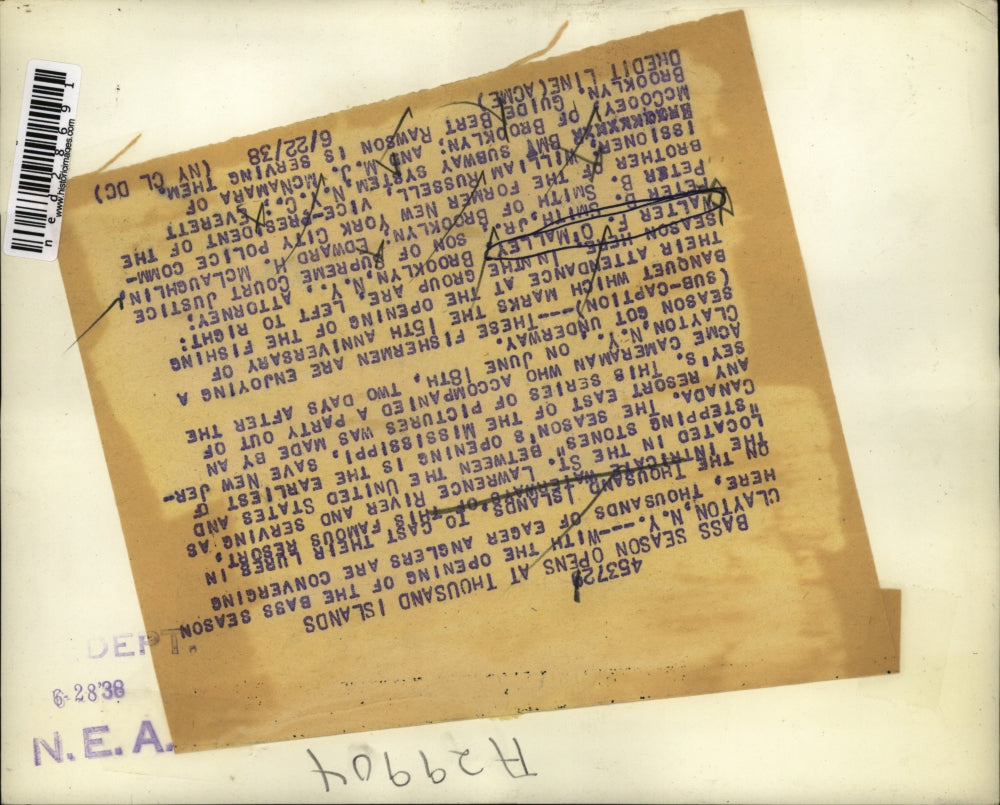 453729
BASS SEASON OPENS AT THOUSAND ISLANDS
CLAYTON, N.Y.---WITH THE OPENING OF THE BASS SEASON
HERE, THOUSANDS OF EAGER ANGLERS ARE CONVERGING
ON THE THOUSAND ISLANDS, TO CAST THEIR LURES IN
THE INTRICATE WATERS OF THIS FAMOUS RESORT,
LOCATED IN THE ST. LAWRENCE RIVER AND SERVING AS
"STEPPING STONES" BETWEEN THE UNITED STATES AND
CANADA. THE SEASON'S OPENING IS THE EARLIEST OF
ANY RESORT EAST OF THE MISSISSIPPI, SAVE NEW JER-
SEY'S. THIS SERIES OF PICTURES WAS MADE BY AN
ACME CAMERAMAN WHO ACCOMPANIED A PARTY OUT OF
CLAYTON, N.Y. ON JUNE 18TH, TWO DAYS AFTER THE
SEASON GOT UNDERWAY.
(SUB-CAPTION)---THESE FISHERMEN ARE ENJOYING A
BANQUET WHICH MARKS THE 15TH ANNIVERSARY OF
THEIR ATTENDANCE AT THE OPENING OF THE FISHING
SEASON HERE IN THE GROUP ARE, LEFT TO RIGHT:
WALTER F. O'MALLEY, BROOKLYN, N.Y. ATTORNEY;
PETER SMITH, JR., SON OF SUPREME COURT JUSTICE
PETER B. SMITH OF BROOKLYN; EDWARD H. MCLAUGHLIN
BROTHER OF THE FORMER NEW YORK CITY POLICE COMM-
ISSIONER; WILLIAM RUSSELL VICE-PRESIDENT OF THE
BMT SUBWAY SYSTEM; N.C. EVERETT
MCCOOEY OF BROOKLYN; AND J.M. MCNAMARA OF
BROOKLYN. GUIDE BERT RAWSON IS SERVING THEM.
CREDIT LINE(ACME) 6/22/38 (NY CL DC)
DEPT.
6-28'38
N.E.A.
A29904
www.historicimages.com
ned28691